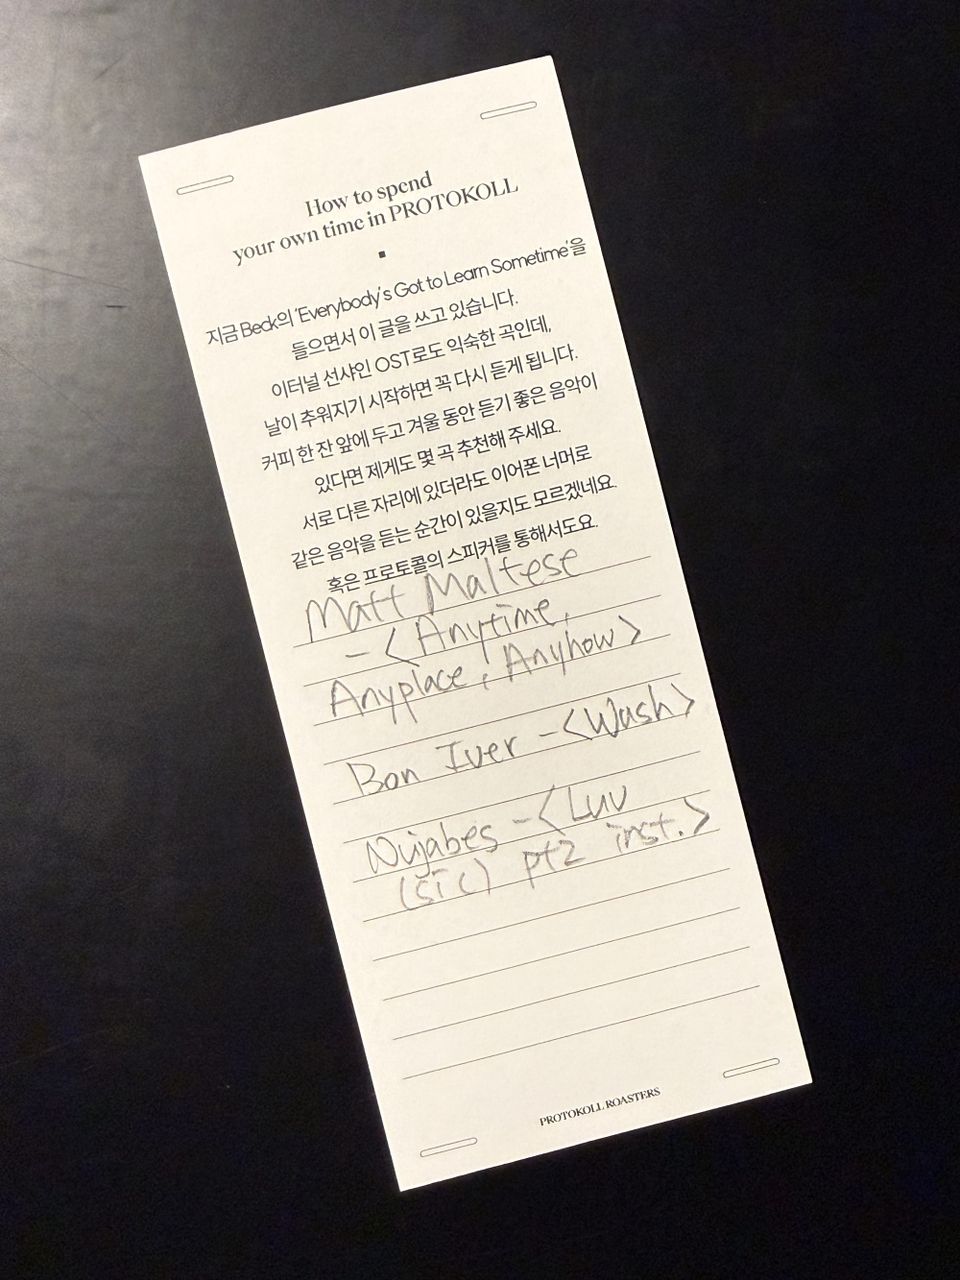 How to spend
your own time in PROTOKOLL
지금 Beck의 'Everybody's Got to Learn Sometime'을
들으면서 이 글을 쓰고 있습니다.
이터널 선샤인 OST로도 익숙한 곡인데,
날이 추워지기 시작하면 꼭 다시 듣게 됩니다.
커피 한 잔 앞에 두고 겨울 동안 듣기 좋은 음악이
있다면 제게도 몇 곡 추천해 주세요.
서로 다른 자리에 있더라도 이어폰 너머로
같은 음악을 듣는 순간이 있을지도 모르겠네요.
혹은 프로토콜의 스피커를 통해서도요.
Matt Maltese
- <Anytime,
Anyplace, Anyhow>
Bon Iver - <Wash>
Nujabes - <Luv
(sic) pt2 inst.>
PROTOKOLL ROASTERS